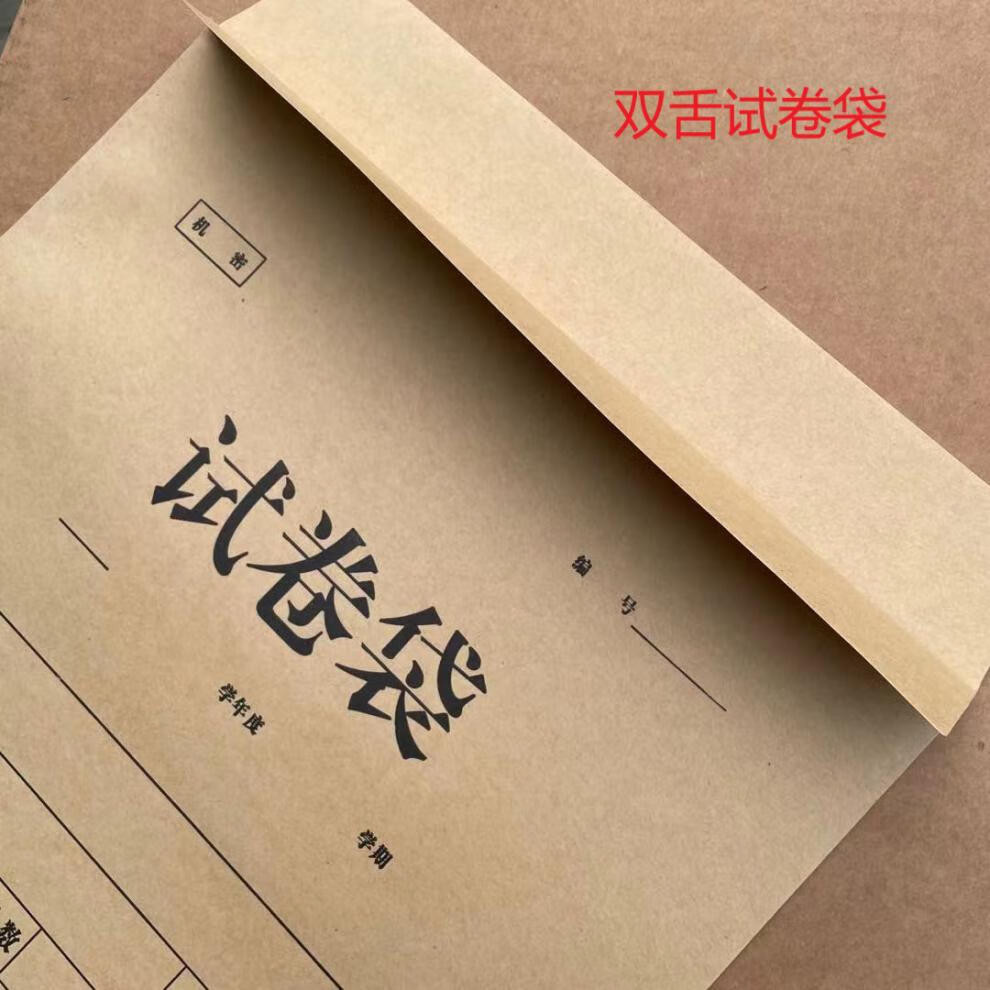 双舌试卷袋
机密
编号
试卷袋
学年度
学期
数